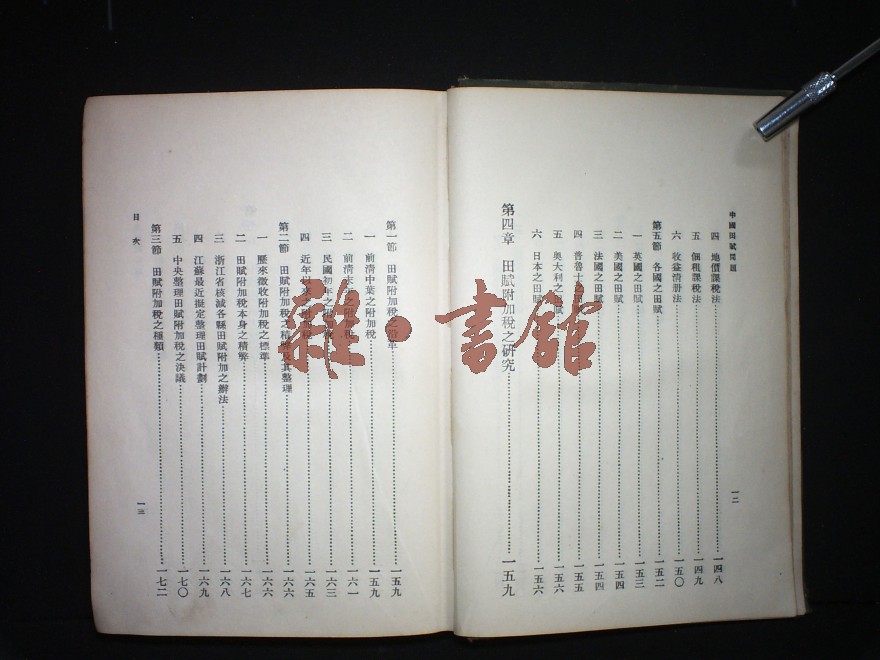 中國田賦問題
四 地價課稅法……一四八
五 佃租課稅法……一四九
六 收益清册法……一五〇
第五節 各國之田賦……一五二
一 英國之田賦……一五三
二 美國之田賦……一五四
三 法國之田賦……一五四
四 普魯士之田賦……一五五
五 奧大利之田賦……一五六
六 日本之田賦……一五六
第四章 田賦附加稅之研究……一五九
一二
第一節 田賦附加稅之沿革……一五九
一 前清中葉之附加稅……一五九
二 前清末年之附加稅……一六一
三 民國初年之附加稅……一六三
四 近年以來之附加稅……一六五
第二節 田賦附加稅之積弊及其整理……一六六
一 歷來徵收附加稅之標準……一六六
二 田賦附加稅本身之積弊……一六七
三 浙江省核減各縣田賦附加之辦法……一六八
四 江蘇最近擬定整理田賦計劃……一六九
五 中央整理田賦附加稅之決議……一七〇
第三節 田賦附加稅之種類……一七二
目次
一三
雜·書館